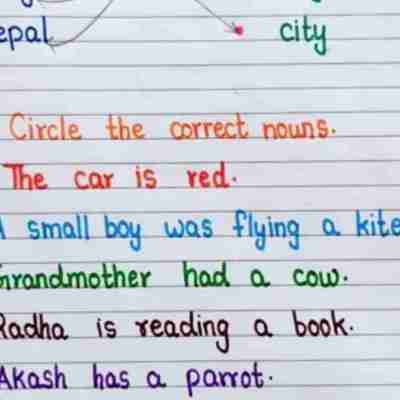 epal city
Circle the correct nouns.
The car is red.
A small boy was flying a kite
Grandmother had a cow.
Radha is reading a book.
Akash has a parrot.